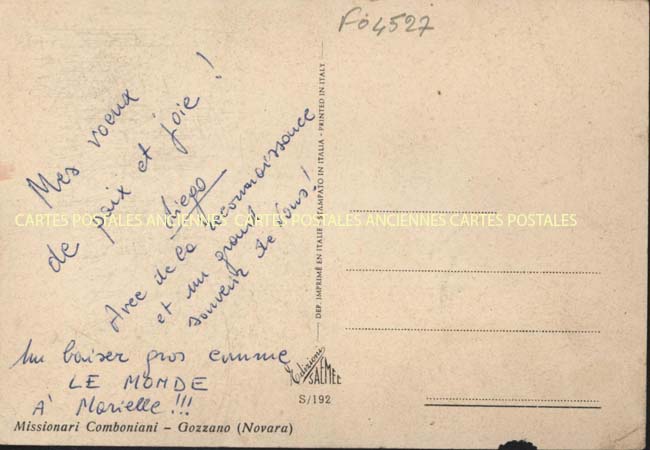 Fo4527
Mes voeux
de paix et joie !
Diego
Avec de la reconnaissance
et un grand
souvenir de vous !
Un baiser gros comme
LE MONDE
A' Marielle !!!
Missionari Comboniani – Gozzano (Novara)
DEP. IMPRIMÉ EN ITALIE - STAMPATO IN ITALIA - PRINTED IN ITALY
Edizioni
SAEMEE
S/192
CARTES POSTALES ANCIENNES CARTES POSTALES ANCIENNES CARTES POSTALES